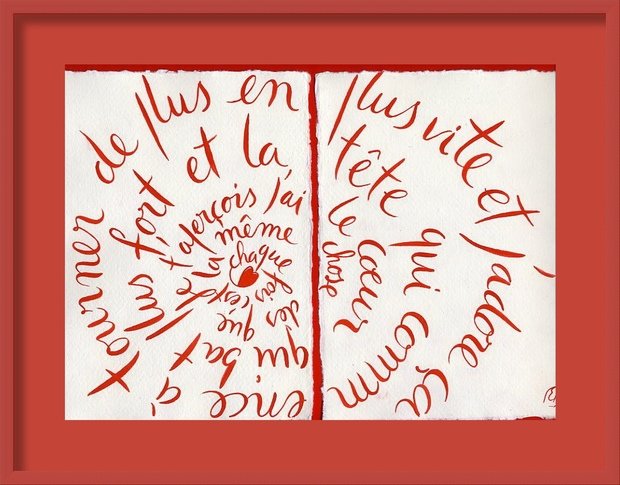 chaque fois c'est la même chose dès que je t'aperçois j'ai le cœur qui bat plus fort et la tête qui commence à tourner de plus en plus vite et j'adore ça